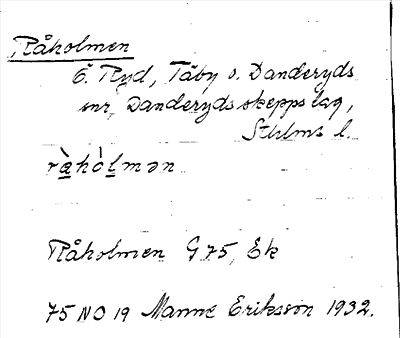 Råholmen
Ö. Ryd, Täby o. Danderyds
snr, Danderyds skeppslag,
Sthlms l.
ràhòlmən
Råholmen G 75, Ek
75 NO 19 Manne Eriksson 1932.